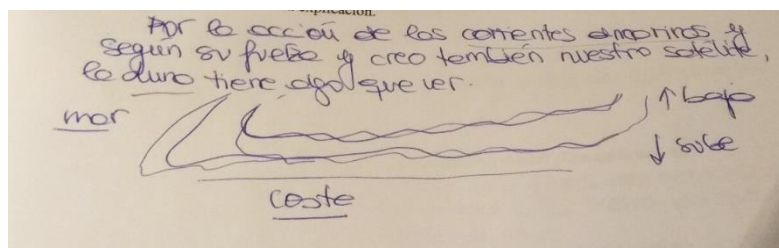 explicación.
Por la acción de las corrientes amorinas y
según su fuerza y creo también nuestro satélite,
la luna tiene algo que ver.
mar
↑ baja
↓ sube
coste